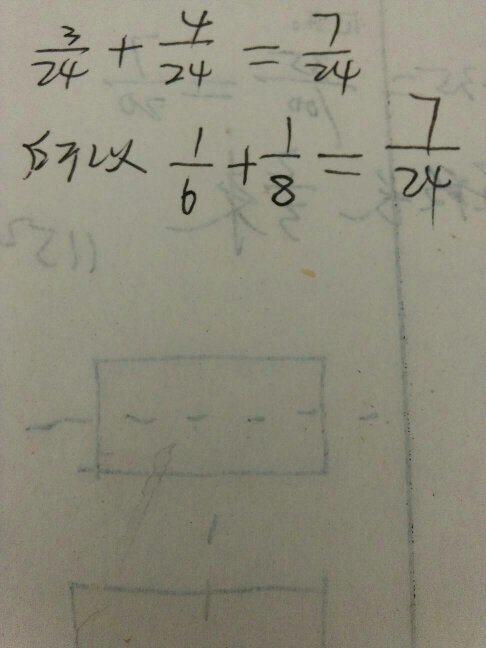 3/24 + 4/24 = 7/24
所以 1/6 + 1/8 = 7/24